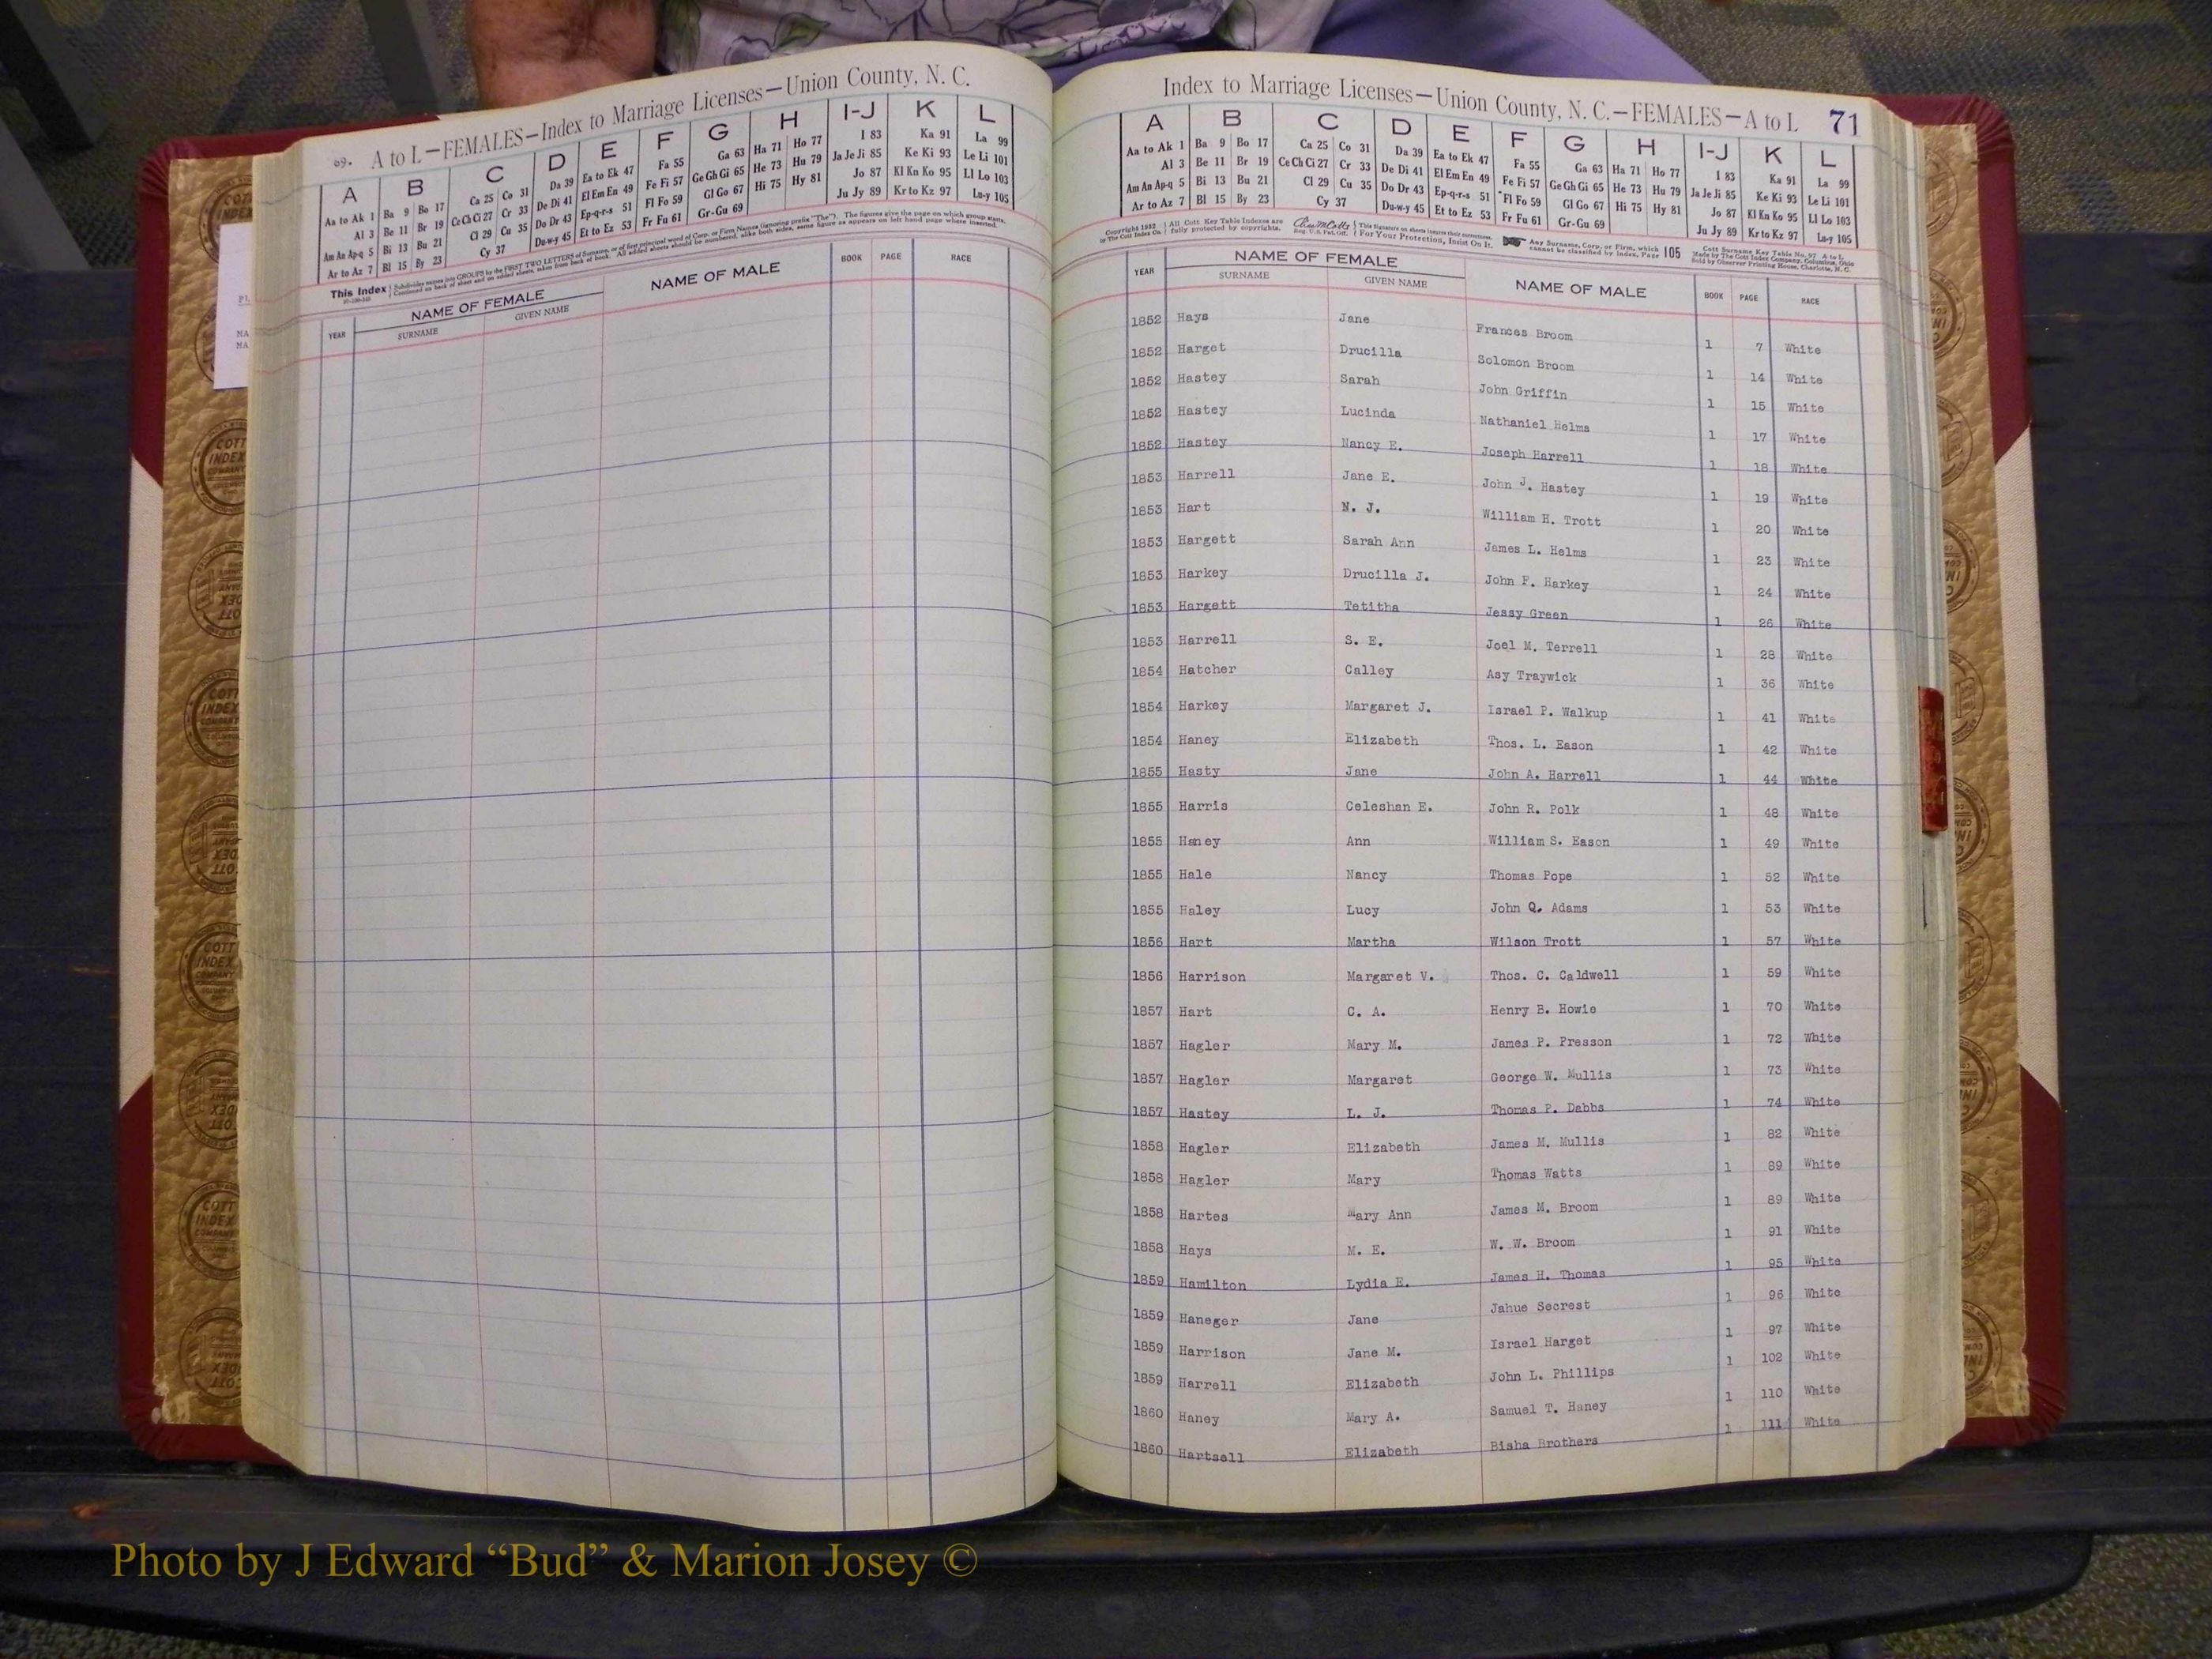 69. A to L—FEMALES—Index to Marriage Licenses—Union County, N. C.
A B C D E F G H I-J K L
Aa to Ak 1 Ba 9 Bo 17 Ca 25 Co 31 Da 39 Ea to Ek 47 Fa 55 Ga 63 Ha 71 Ho 77 I 83 Ka 91 La 99
Al 3 Be 11 Br 19 Ce Ch Ci 27 Cr 33 De Di 41 El Em En 49 Fe Fi 57 Ge Gh Gi 65 He 73 Hu 79 Ja Je Ji 85 Ke Ki 93 Le Li 101
Am An Ap-q 5 Bi 13 Bu 21 Cl 29 Cu 35 Do Dr 43 Ep-q-r-s 51 Fl Fo 59 Gl Go 67 Hi 75 Hy 81 Jo 87 Kl Kn Ko 95 Ll Lo 103
Ar to Az 7 Bl 15 By 23 Cy 37 Du-w-y 45 Et to Ez 53 Fr Fu 61 Gr-Gu 69 Ju Jy 89 Kr to Kz 97 Lu-y 105
This Index
YEAR NAME OF FEMALE NAME OF MALE BOOK PAGE RACE
SURNAME GIVEN NAME
Index to Marriage Licenses—Union County, N. C.—FEMALES—A to L 71
A B C D E F G H I-J K L
Aa to Ak 1 Ba 9 Bo 17 Ca 25 Co 31 Da 39 Ea to Ek 47 Fa 55 Ga 63 Ha 71 Ho 77 I 83 Ka 91 La 99
Al 3 Be 11 Br 19 Ce Ch Ci 27 Cr 33 De Di 41 El Em En 49 Fe Fi 57 Ge Gh Gi 65 He 73 Hu 79 Ja Je Ji 85 Ke Ki 93 Le Li 101
Am An Ap-q 5 Bi 13 Bu 21 Cl 29 Cu 35 Do Dr 43 Ep-q-r-s 51 Fl Fo 59 Gl Go 67 Hi 75 Hy 81 Jo 87 Kl Kn Ko 95 Ll Lo 103
Ar to Az 7 Bl 15 By 23 Cy 37 Du-w-y 45 Et to Ez 53 Fr Fu 61 Gr-Gu 69 Ju Jy 89 Kr to Kz 97 Lu-y 105
YEAR NAME OF FEMALE NAME OF MALE BOOK PAGE RACE
SURNAME GIVEN NAME
1852 Hays Jane Frances Broom 1 7 White
1852 Harget Drucilla Solomon Broom 1 14 White
1852 Hastey Sarah John Griffin 1 15 White
1852 Hastey Lucinda Nathaniel Helms 1 17 White
1852 Hastey Nancy E. Joseph Harrell 1 18 White
1853 Harrell Jane E. John J. Hastey 1 19 White
1853 Hart N. J. William H. Trott 1 20 White
1853 Hargett Sarah Ann James L. Helms 1 23 White
1853 Harkey Drucilla J. John F. Harkey 1 24 White
1853 Hargett Tetitha Jessy Green 1 26 White
1853 Harrell S. E. Joel M. Terrell 1 28 White
1854 Hatcher Calley Asy Traywick 1 36 White
1854 Harkey Margaret J. Israel P. Walkup 1 41 White
1854 Haney Elizabeth Thos. L. Eason 1 42 White
1855 Hasty Jane John A. Harrell 1 44 White
1855 Harris Celeshan E. John R. Polk 1 48 White
1855 Haney Ann William S. Eason 1 49 White
1855 Hale Nancy Thomas Pope 1 52 White
1855 Haley Lucy John Q. Adams 1 53 White
1856 Hart Martha Wilson Trott 1 57 White
1856 Harrison Margaret V. Thos. C. Caldwell 1 59 White
1857 Hart C. A. Henry B. Howie 1 70 White
1857 Hagler Mary M. James P. Presson 1 72 White
1857 Hagler Margaret George W. Mullis 1 73 White
1857 Hastey L. J. Thomas P. Dabbs 1 74 White
1858 Hagler Elizabeth James M. Mullis 1 82 White
1858 Hagler Mary Thomas Watts 1 89 White
1858 Hartes Mary Ann James M. Broom 1 89 White
1858 Hays M. E. W. W. Broom 1 91 White
1859 Hamilton Lydia E. James H. Thomas 1 95 White
1859 Haneger Jane Jahue Secrest 1 96 White
1859 Harrison Jane M. Israel Harget 1 97 White
1859 Harrell Elizabeth John L. Phillips 1 102 White
1860 Haney Mary A. Samuel T. Haney 1 110 White
1860 Hartsell Elizabeth Bisha Brothers 1 111 White
Photo by J Edward “Bud” & Marion Josey ©